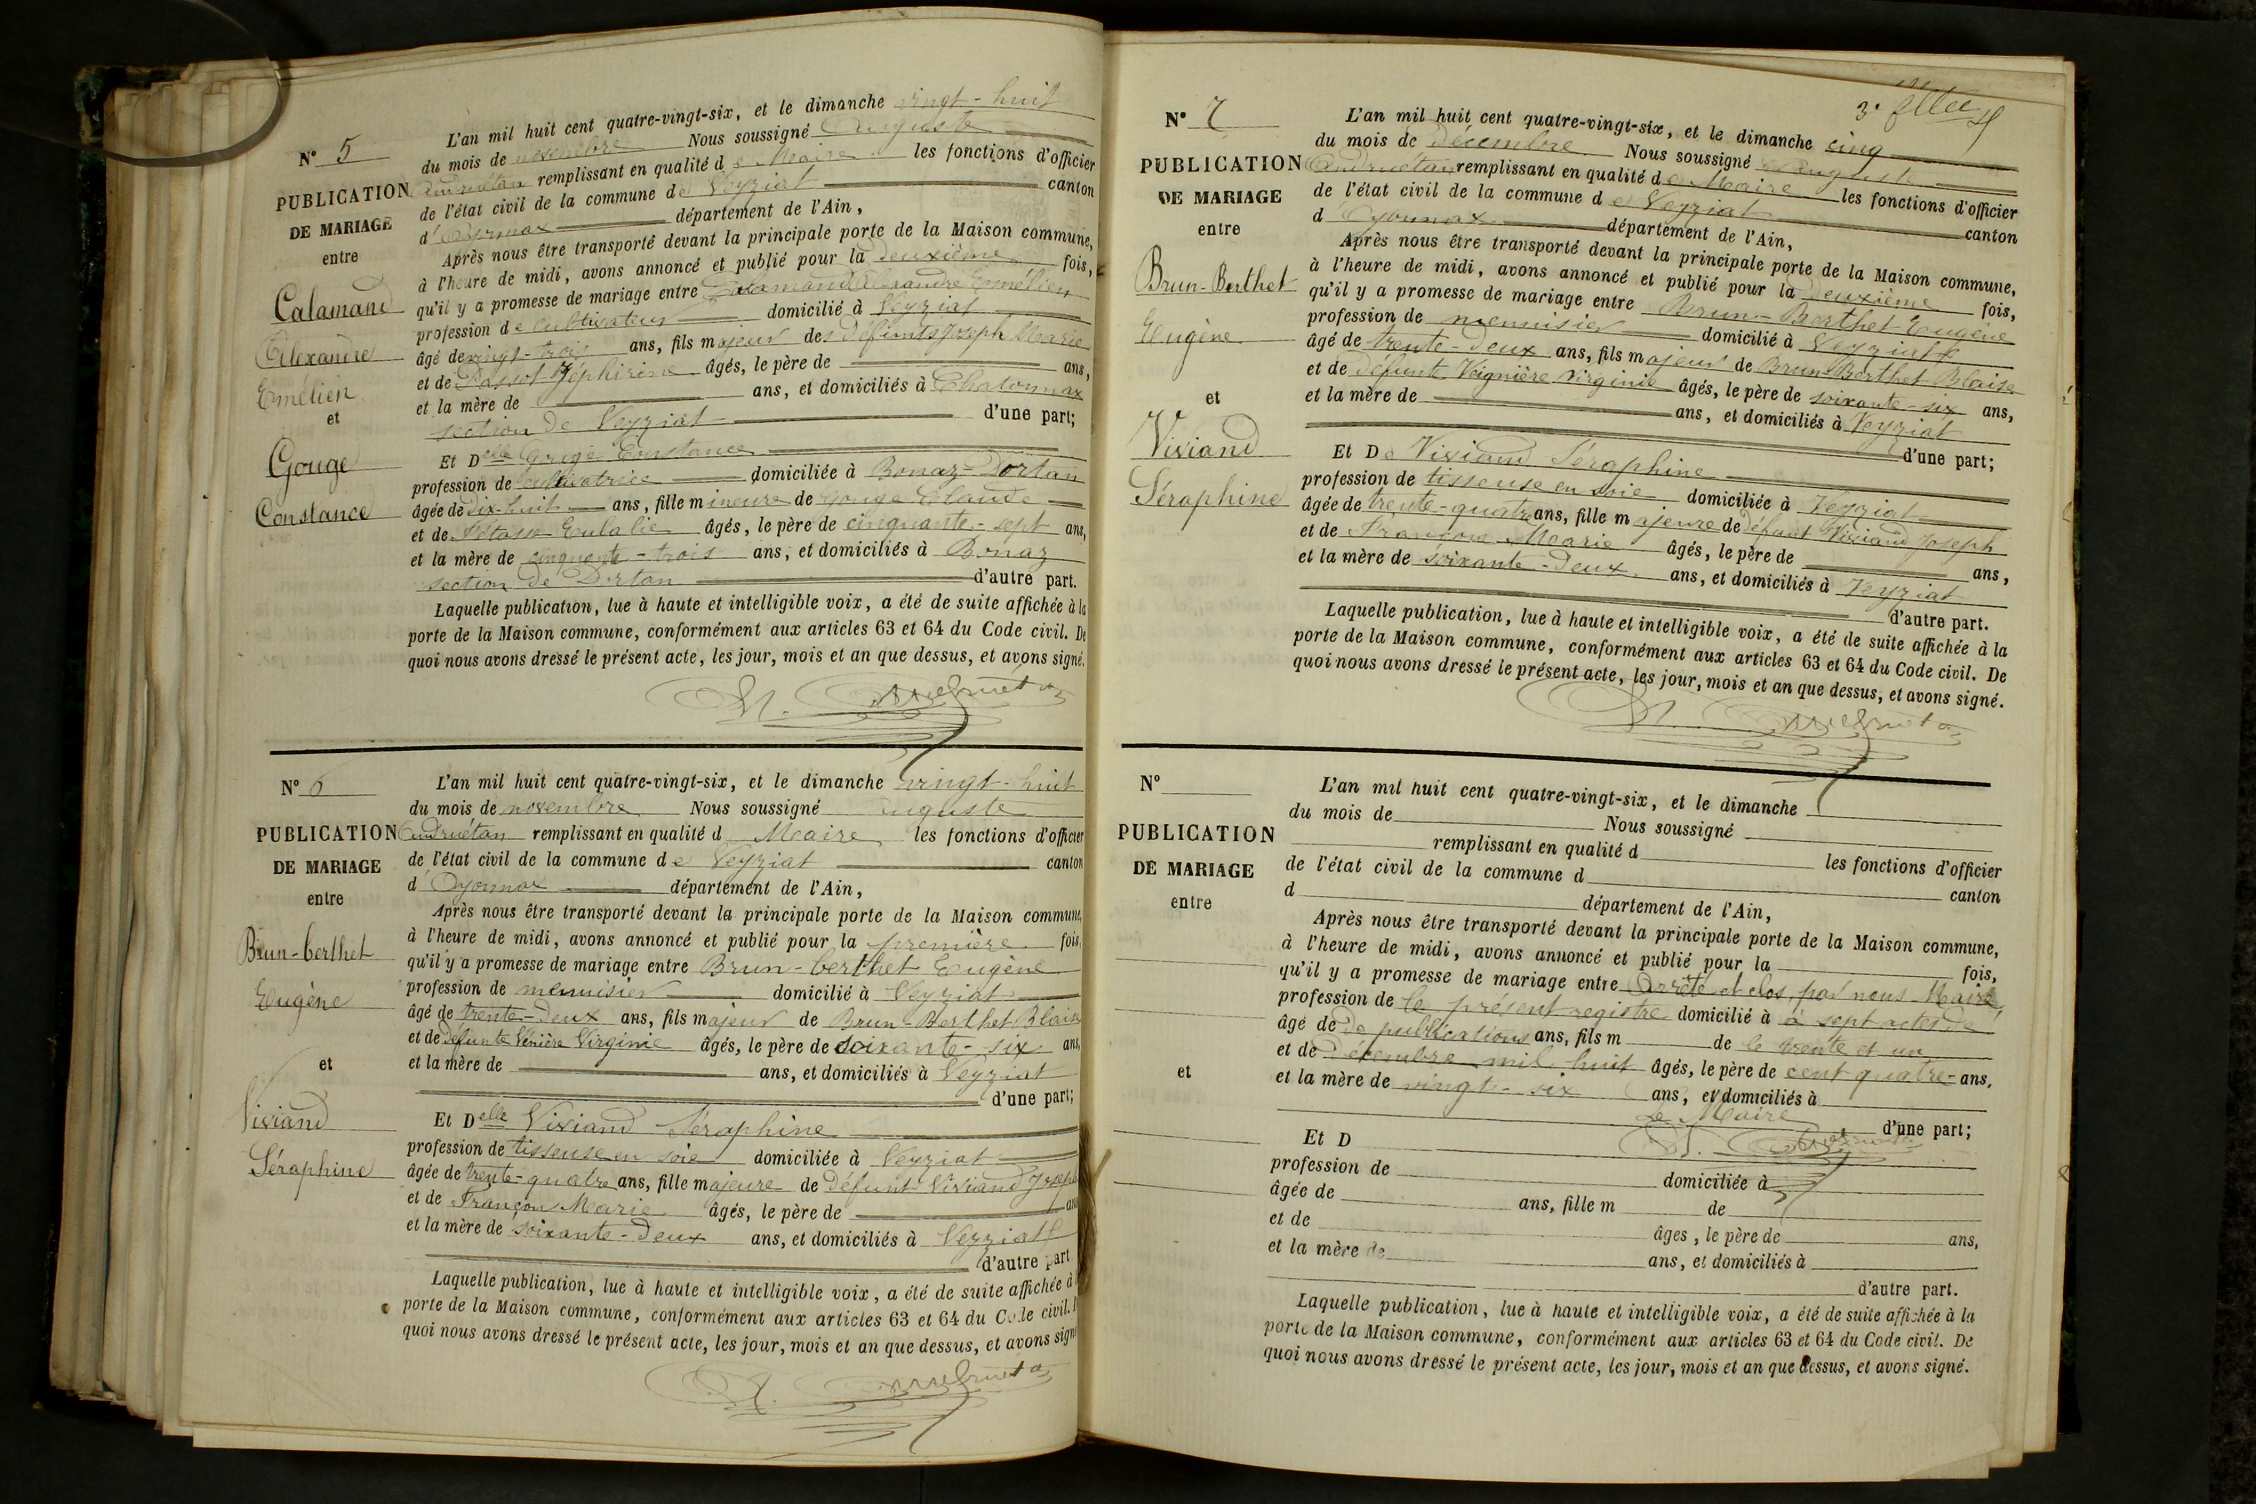 N° 5
PUBLICATION
DE MARIAGE
entre
Calamand
Alexandre
Emélien
et
Gouge
Constance
L'an mil huit cent quatre-vingt-six, et le dimanche vingt-huit
du mois de novembre Nous soussigné Auguste
Andruétan remplissant en qualité de Maire les fonctions d'officier
de l'état civil de la commune de Veyziat canton
d'Oyonnax département de l'Ain,
Après nous être transporté devant la principale porte de la Maison commune,
à l'heure de midi, avons annoncé et publié pour la deuxième fois,
qu'il y a promesse de mariage entre Calamand Alexandre Emélien
profession de cultivateur domicilié à Veyziat
âgé de vingt-trois ans, fils majeur des défunts Joseph Marie
et de Passot Zéphirène âgés, le père de ans,
et la mère de ans, et domiciliés à Chatonnax
section de Veyziat d'une part;
Et Delle Gouge Constance
profession de cultivatrice domiciliée à Bonaz-Dortan
âgée de dix-huit ans, fille mineure de Gouge Claude
et de Eulalie âgés, le père de cinquante-sept ans,
et la mère de cinquante-trois ans, et domiciliés à Bonaz
section de Dortan d'autre part.
Laquelle publication, lue à haute et intelligible voix, a été de suite affichée à la
porte de la Maison commune, conformément aux articles 63 et 64 du Code civil. De
quoi nous avons dressé le présent acte, les jour, mois et an que dessus, et avons signé.
A. Andruétan
N° 6
PUBLICATION
DE MARIAGE
entre
Brun-berthet
Eugène
et
Viviand
Séraphine
L'an mil huit cent quatre-vingt-six, et le dimanche vingt-huit
du mois de novembre Nous soussigné Auguste
Andruétan remplissant en qualité d Maire les fonctions d'officier
de l'état civil de la commune de Veyziat canton
d'Oyonnax département de l'Ain,
Après nous être transporté devant la principale porte de la Maison commune,
à l'heure de midi, avons annoncé et publié pour la première fois,
qu'il y a promesse de mariage entre Brun-berthet Eugène
profession de menuisier domicilié à Veyziat
âgé de trente-deux ans, fils majeur de Brun-Berthet Blaise
et de défunte Vénière Virginie âgés, le père de soixante-six ans,
et la mère de ans, et domiciliés à Veyziat
d'une part;
Et Delle Viviand Séraphine
profession de tisseuse en soie domiciliée à Veyziat
âgée de trente-quatre ans, fille majeure de défunt Viviand Joseph
et de Françon Marie âgés, le père de ans
et la mère de soixante-deux ans, et domiciliés à Veyziat
d'autre part
Laquelle publication, lue à haute et intelligible voix, a été de suite affichée à
porte de la Maison commune, conformément aux articles 63 et 64 du Code civil.
quoi nous avons dressé le présent acte, les jour, mois et an que dessus, et avons signé
A. Andruétan
3e
N° 7
PUBLICATION
DE MARIAGE
entre
Brun-Berthet
Eugène
et
Viviand
Séraphine
L'an mil huit cent quatre-vingt-six, et le dimanche cinq
du mois de décembre Nous soussigné Auguste
Andruétan remplissant en qualité de Maire les fonctions d'officier
de l'état civil de la commune de Veyziat canton
d'Oyonnax département de l'Ain,
Après nous être transporté devant la principale porte de la Maison commune,
à l'heure de midi, avons annoncé et publié pour la deuxième fois,
qu'il y a promesse de mariage entre Brun-Berthet Eugène
profession de menuisier domicilié à Veyziat
âgé de trente-deux ans, fils majeur de Brun-Berthet Blaise
et de défunte Veignière Virginie âgés, le père de soixante-six ans,
et la mère de ans, et domiciliés à Veyziat
d'une part;
Et De Viviand Séraphine
profession de tisseuse en soie domiciliée à Veyziat
âgée de trente-quatre ans, fille majeure de défunt Viviand Joseph
et de Françon Marie âgés, le père de ans,
et la mère de soixante-deux ans, et domiciliés à Veyziat
d'autre part.
Laquelle publication, lue à haute et intelligible voix, a été de suite affichée à la
porte de la Maison commune, conformément aux articles 63 et 64 du Code civil. De
quoi nous avons dressé le présent acte, les jour, mois et an que dessus, et avons signé.
A. Andruétan
N°
PUBLICATION
DE MARIAGE
entre
et
L'an mil huit cent quatre-vingt-six, et le dimanche
du mois de Nous soussigné
remplissant en qualité d les fonctions d'officier
de l'état civil de la commune d canton
d département de l'Ain,
Après nous être transporté devant la principale porte de la Maison commune,
à l'heure de midi, avons annoncé et publié pour la fois,
qu'il y a promesse de mariage entre Arrêté et clos, par nous Maire
profession de le présent registre domicilié à à sept actes de
âgé de de publications ans, fils m de le trente et un
et de Décembre mil huit âgés, le père de cent quatre- ans,
et la mère de vingt-six ans, et domiciliés à
Le Maire d'une part;
Et D A. Andruétan
profession de domiciliée à
âgée de ans, fille m de
et de âges, le père de ans,
et la mère de ans, et domiciliés à
d'autre part.
Laquelle publication, lue à haute et intelligible voix, a été de suite affichée à la
porte de la Maison commune, conformément aux articles 63 et 64 du Code civil. De
quoi nous avons dressé le présent acte, les jour, mois et an que dessus, et avons signé.